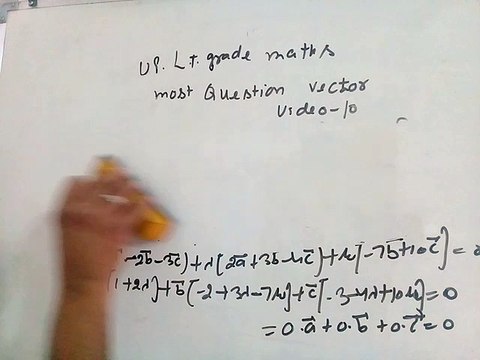 UP. L.t. grade maths
most Question vector
video-10
-2b⃗-3c⃗)+λ(2a⃗+3b⃗-4c⃗)+μ[-7b⃗+10c⃗]=0
1+2λ]+b⃗[-2+3λ-7μ]+c⃗[-3-4λ+10μ]=0
=0.a⃗+0.b⃗+0.c⃗=0